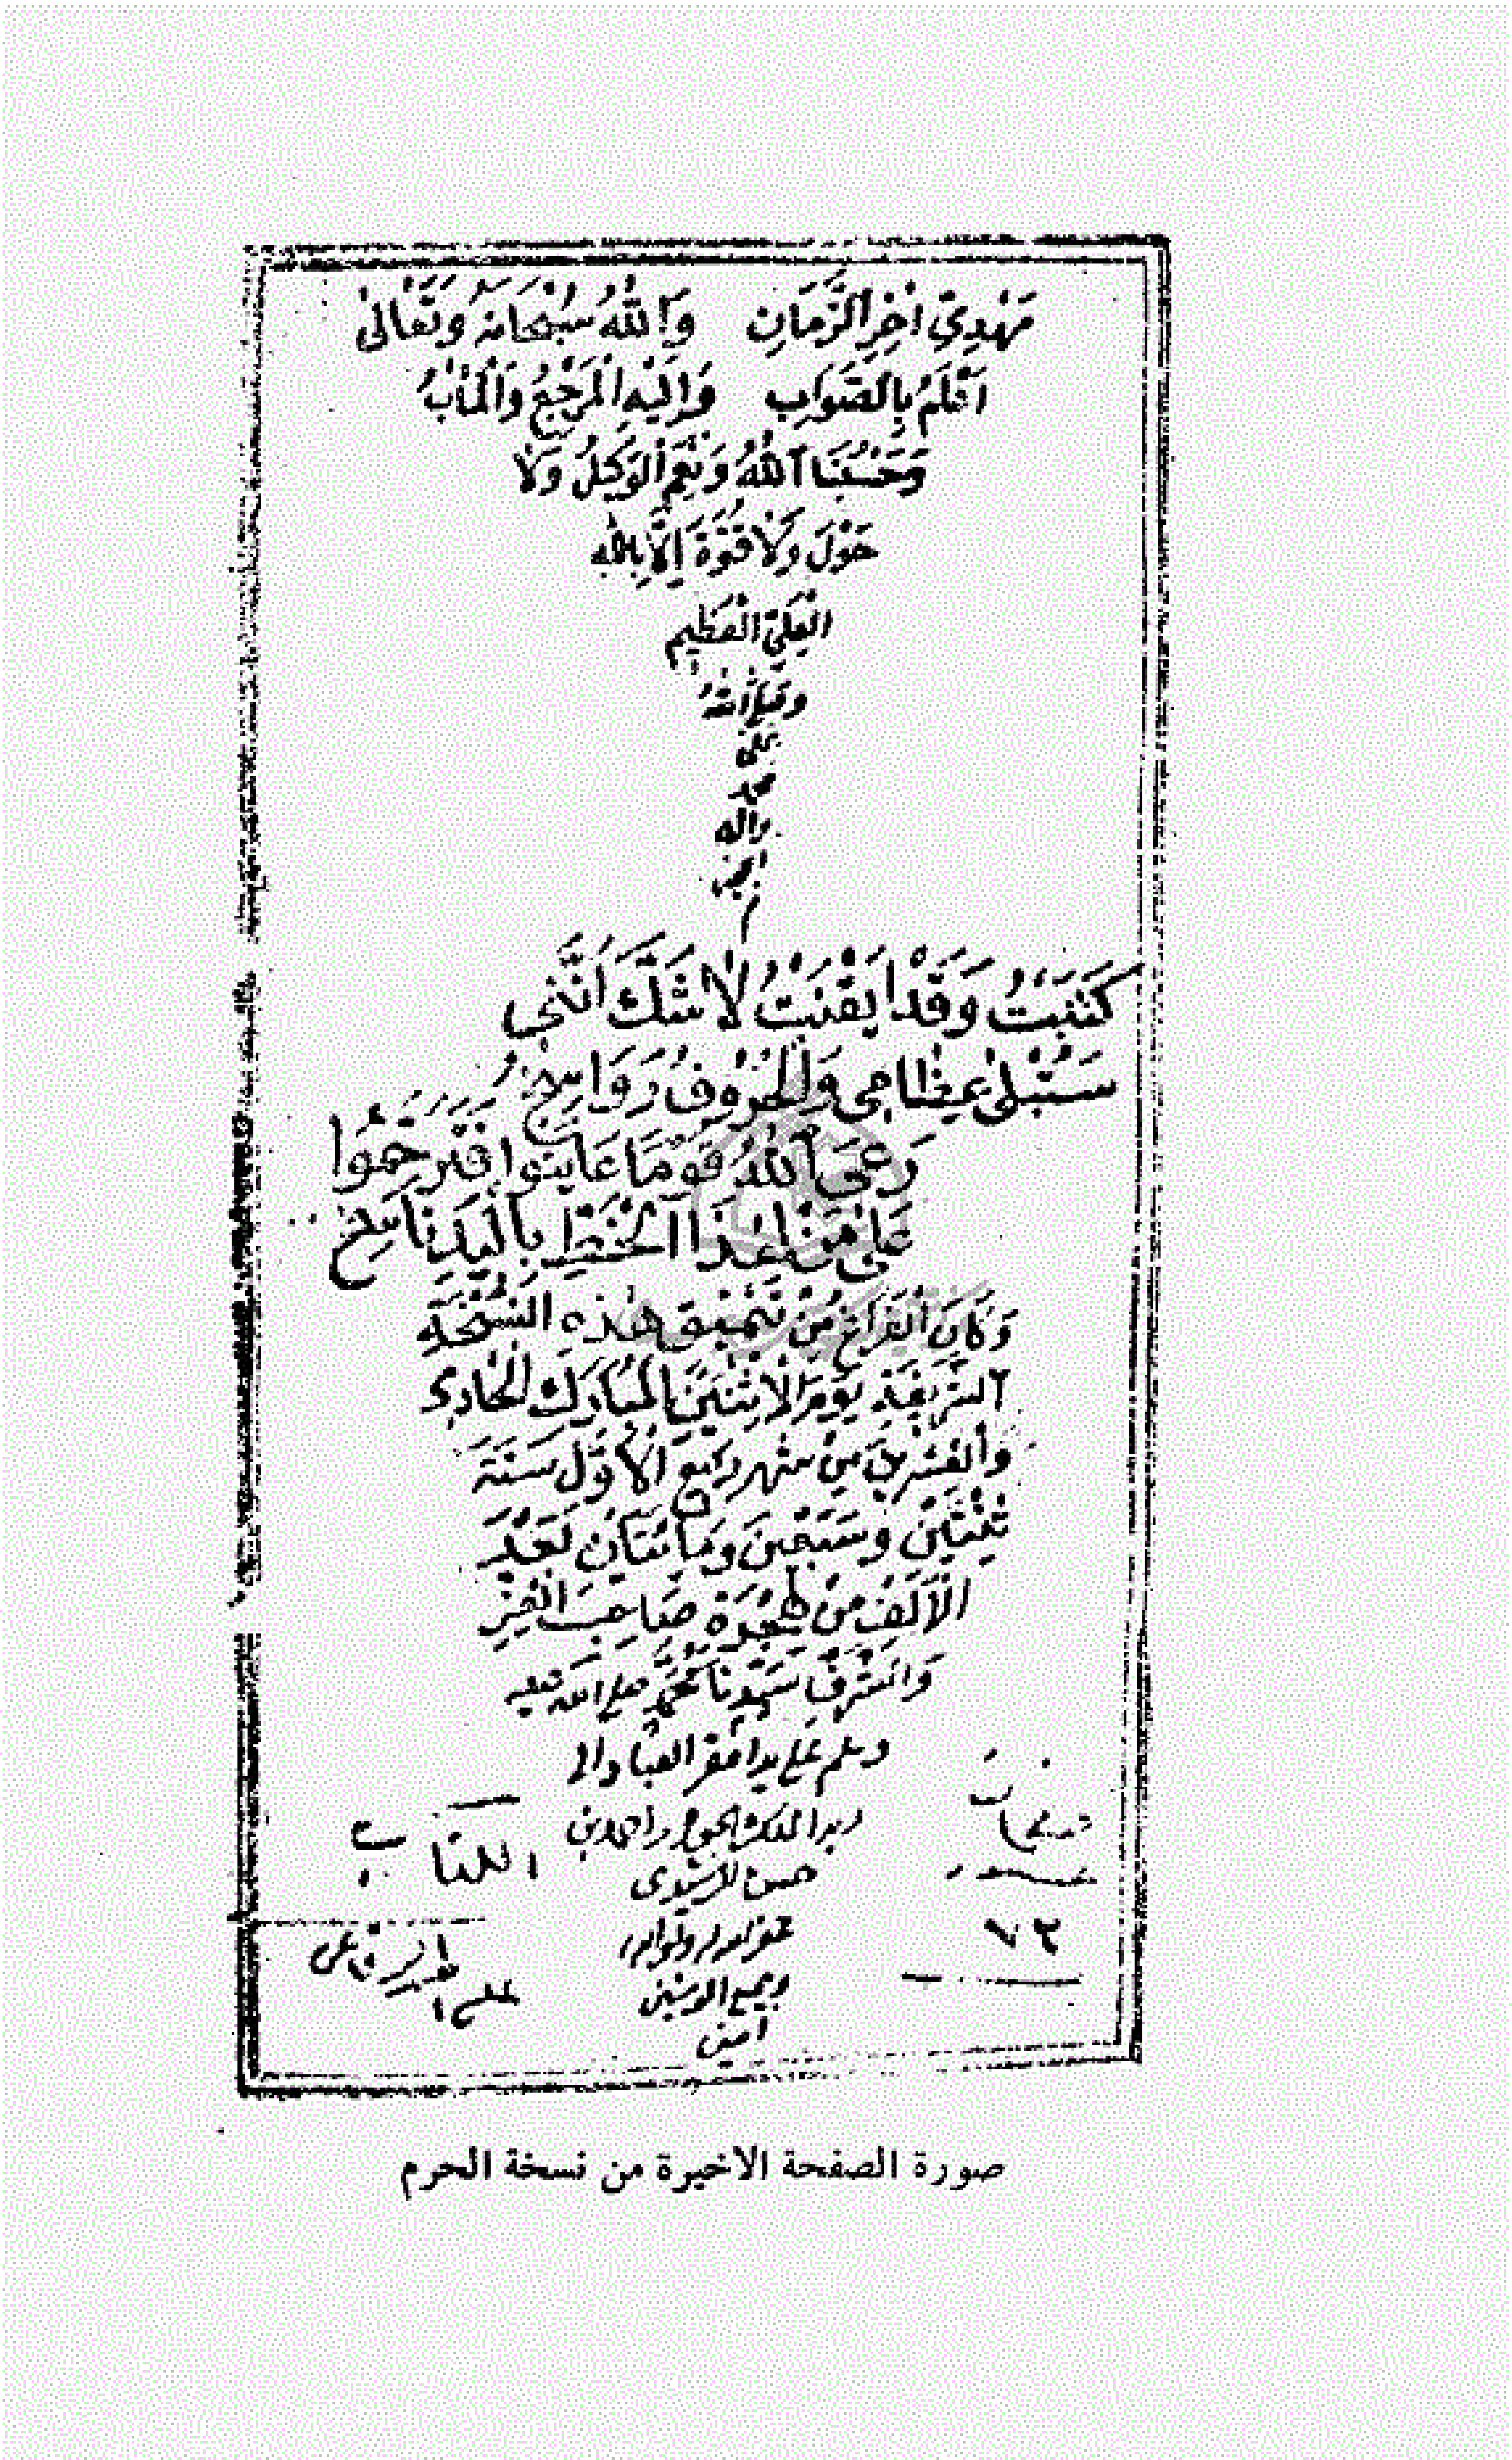 مَهْدِيِّ اٰخِرِ الزَّمَانِ وَاللّٰهُ سُبْحَانَهُ وَتَعَالٰى
اَعْلَمُ بِالصَّوَابِ وَاِلَيْهِ الْمَرْجِعُ وَالْمَاٰبُ
وَحَسْبُنَا اللّٰهُ وَنِعْمَ الْوَكِيلُ وَلَا
حَوْلَ وَلَا قُوَّةَ اِلَّا بِاللّٰهِ
الْعَلِيِّ الْعَظِيمِ
وصلى اللهُ
على
محمد
واله
كَتَبْتُ وَقَدْ اَيْقَنْتُ لَا شَكَّ اَنَّنِي
سَتُبْلٰى عِظَامِي وَالْحُرُوفُ رَوَاسِخُ
رَعَى اللّٰهُ قَوْمًا عَايَنُوا فَتَرَحَّمُوا
عَلٰى مَنْ لِهٰذَا الْخَطِّ بِالْيَدِ نَاسِخُ
وَكَانَ الْفَرَاغُ مِنْ تَنْمِيقِ هٰذِهِ النُّسْخَةِ
الشَّرِيفَةِ يَوْمَ الْاِثْنَيْنِ الْمُبَارَكِ الْحَادِي
وَالْعِشْرِينَ مِنْ شهر ربيع الْاَوَّلِ سَنَةَ
ثِنْتَيْنِ وَسَبْعِينَ وَمِائَتَانِ بَعْدَ
الْاَلْفِ مِنْ هِجْرَةِ صَاحِبِ الْعِزِّ
وَالشَّرَفِ سَيِّدِنَا مُحَمَّدٍ صلى الله عليه
وسلم على يد افقر العباد الى
احمد بن
حسن الرشيدى
غفر الله له ولوالديه
وجميع المسلمين
امين
الكتاب
٧٢
صورة الصفحة الاخيرة من نسخة الحرم